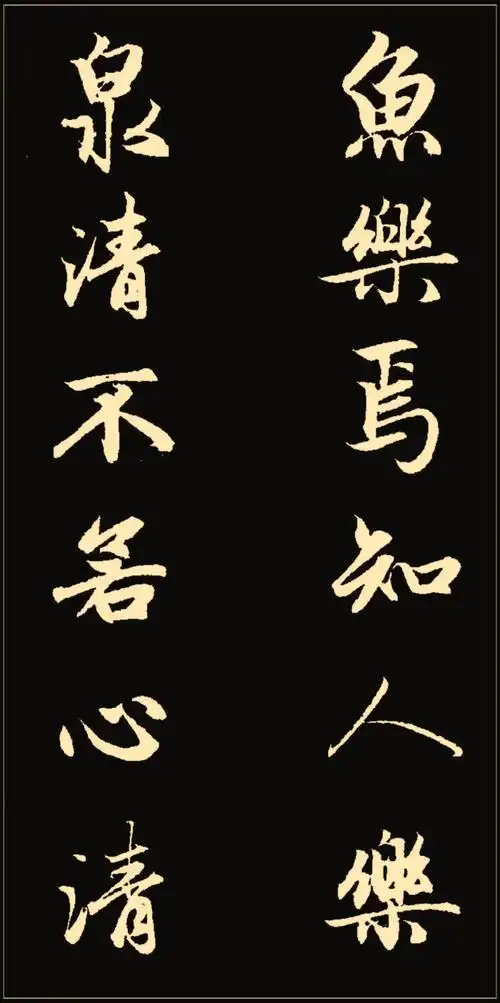 魚樂焉知人樂
泉清不若心清